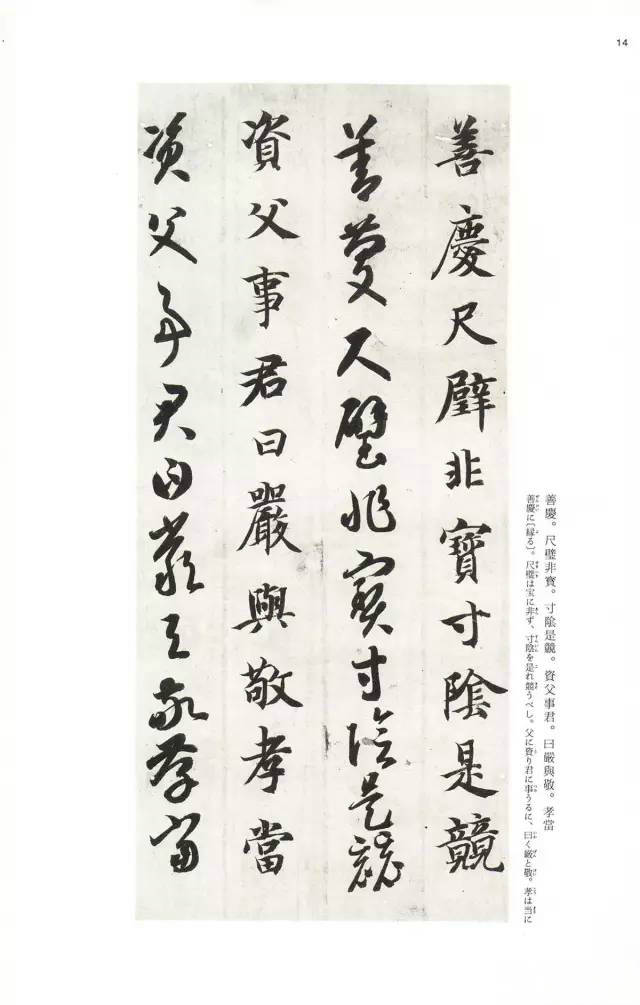 14
善慶尺璧非寶寸陰是競
善慶尺璧非寶寸陰是競
資父事君曰嚴與敬孝當
資父事君曰嚴與敬孝當
善慶。尺璧非寳。寸陰是競。資父事君。曰嚴與敬。孝當
善慶に〔縁る〕。尺璧は宝に非ず、寸陰を是れ競うべし。父に資り君に事うるに、曰く厳と敬。孝は当に